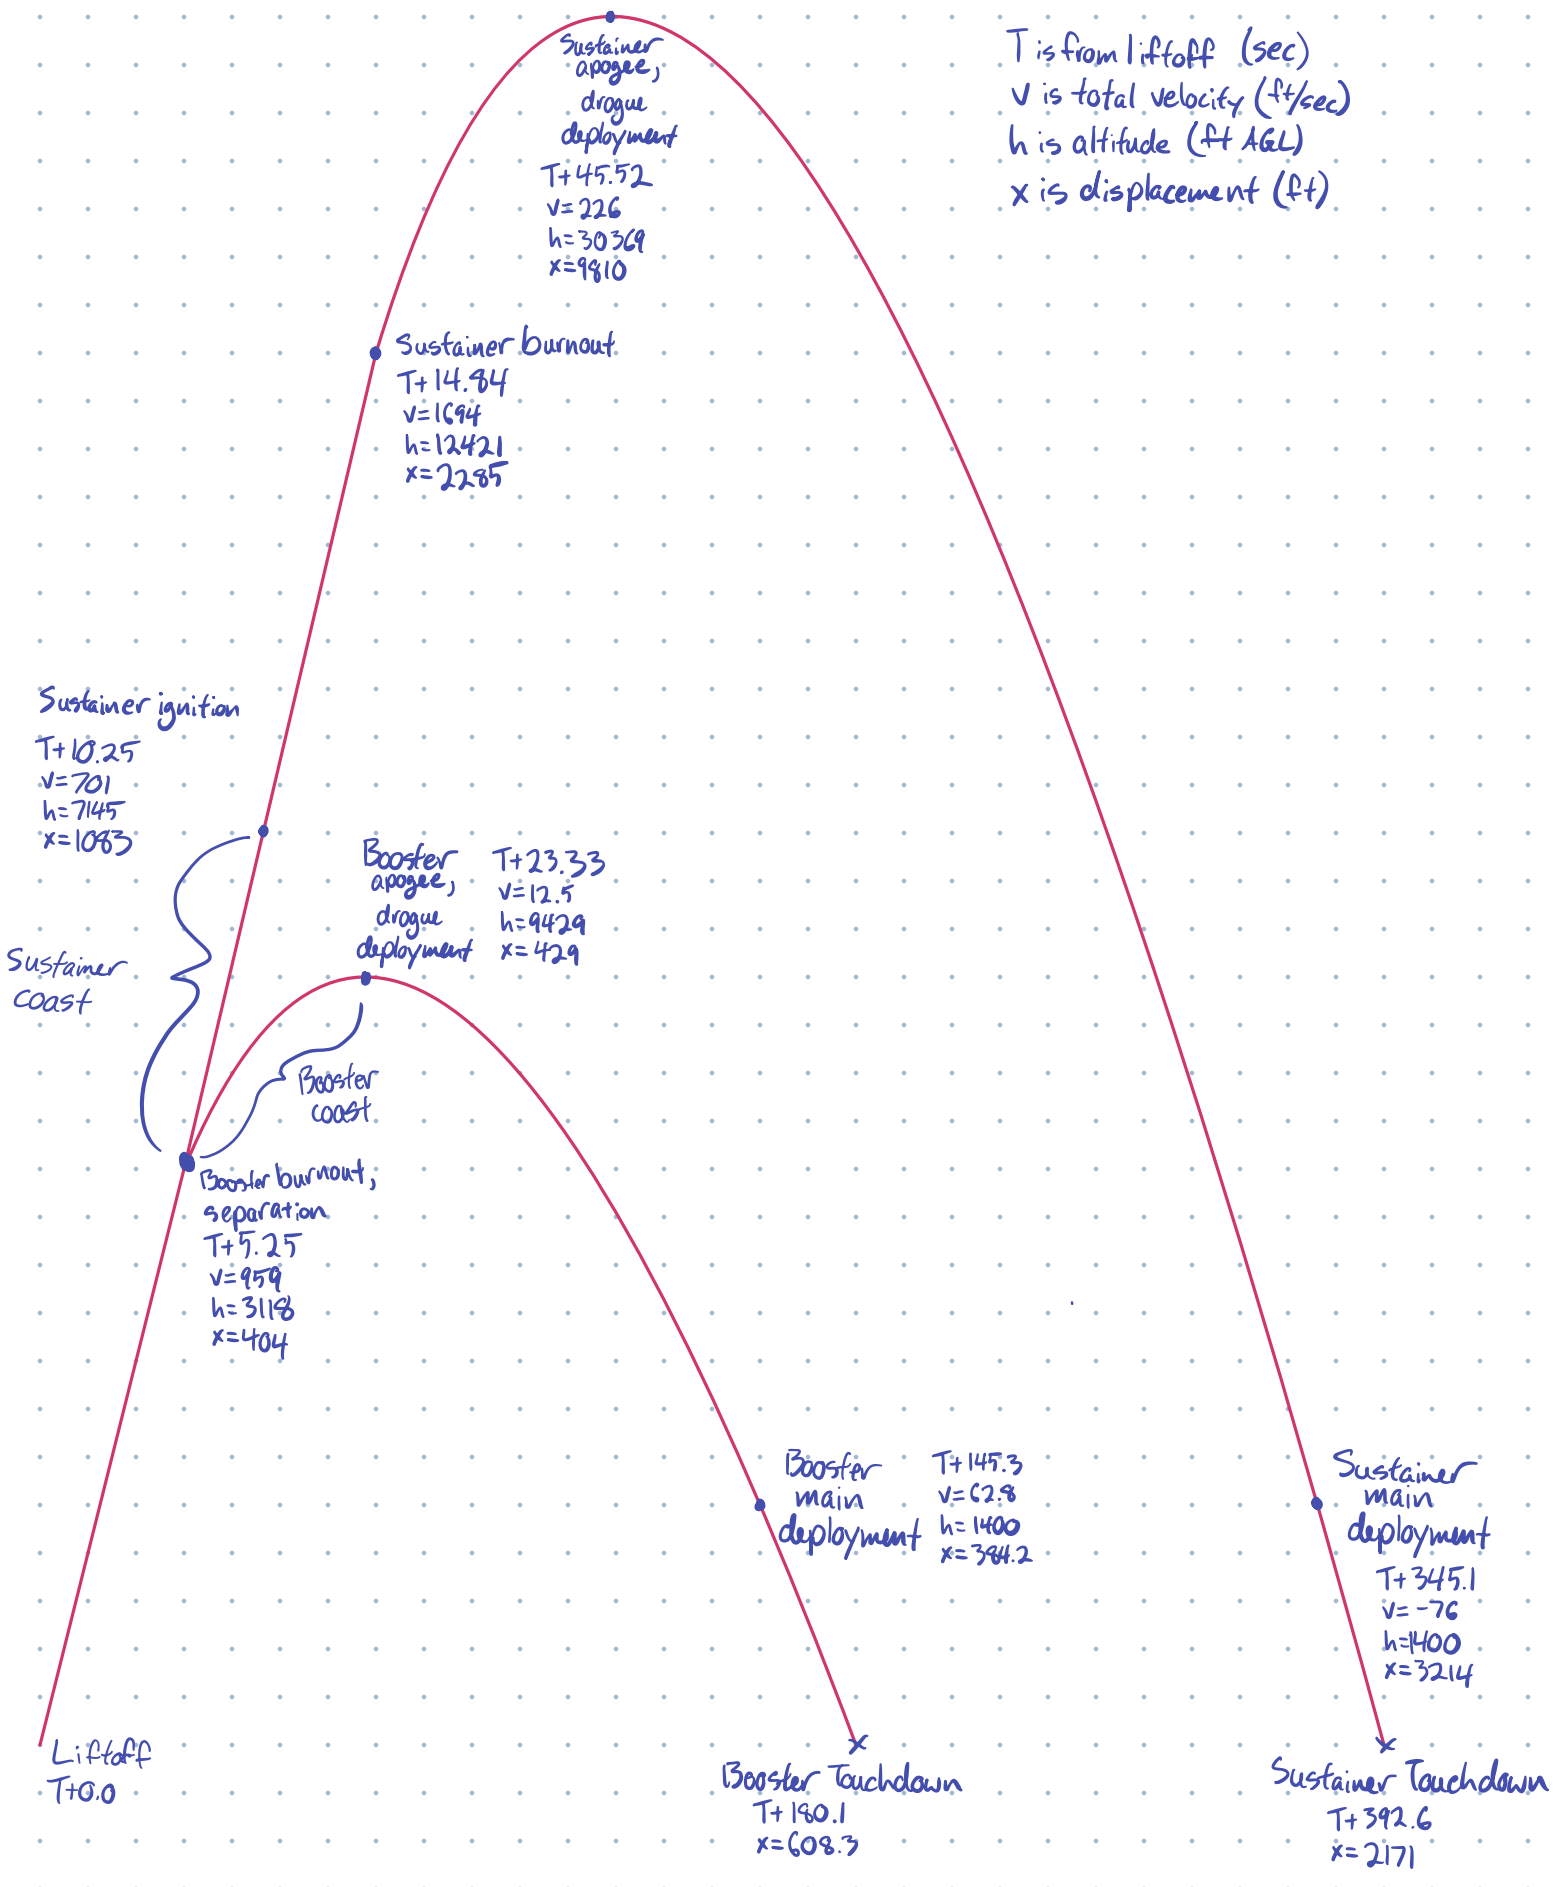 Sustainer
apogee,
drogue
deployment
T+45.52
v=226
h=30369
x=9810
T is from liftoff (sec)
v is total velocity (ft/sec)
h is altitude (ft AGL)
x is displacement (ft)
Sustainer burnout
T+14.84
v=1694
h=12421
x=2285
Sustainer ignition
T+10.25
v=701
h=7145
x=1083
Booster
apogee,
drogue
deployment
T+23.33
v=12.5
h=9429
x=429
Sustainer
coast
Booster
coast
Booster burnout,
separation
T+5.25
v=959
h=3118
x=404
Booster
main
deployment
T+145.3
v=62.8
h=1400
x=384.2
Sustainer
main
deployment
T+345.1
v=-76
h=1400
x=3214
Liftoff
T+0.0
Booster Touchdown
T+180.1
x=608.3
Sustainer Touchdown
T+392.6
x=2171